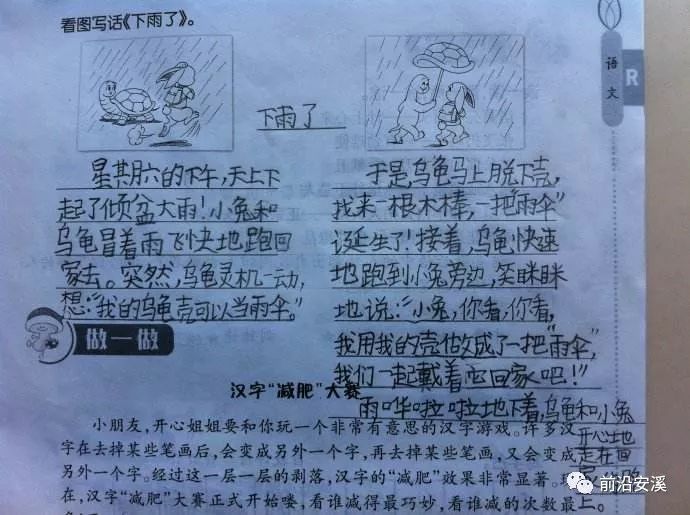 看图写话《下雨了》。
语文
R
下雨了
星期六的下午,天上下
起了倾盆大雨!小兔和
乌龟冒着雨飞快地跑回
家去。突然,乌龟灵机一动,
想:“我的乌龟壳可以当雨伞。”
于是,乌龟马上脱下壳,
找来一根木棒,一把“雨伞”
诞生了!接着,乌龟快速
地跑到小兔旁边,笑眯眯
地说:“小兔,你看,你看,
我用我的壳做成了一把“雨伞”,
我们一起戴着它回家吧!”
雨哗啦啦地下着,乌龟和小兔
开心地
走在回
做一做
汉字“减肥”大赛
小朋友,开心姐姐要和你玩一个非常有意思的汉字游戏。许多汉
字在去掉某些笔画后,会变成另外一个字,再去掉某些笔画,又会变成
另外一个字。经过这一层一层的剥落,汉字的“减肥”效果非常显著。
在,汉字“减肥”大赛正式开始喽,看谁减得最巧妙,看谁减的次数最
上。
前沿安溪